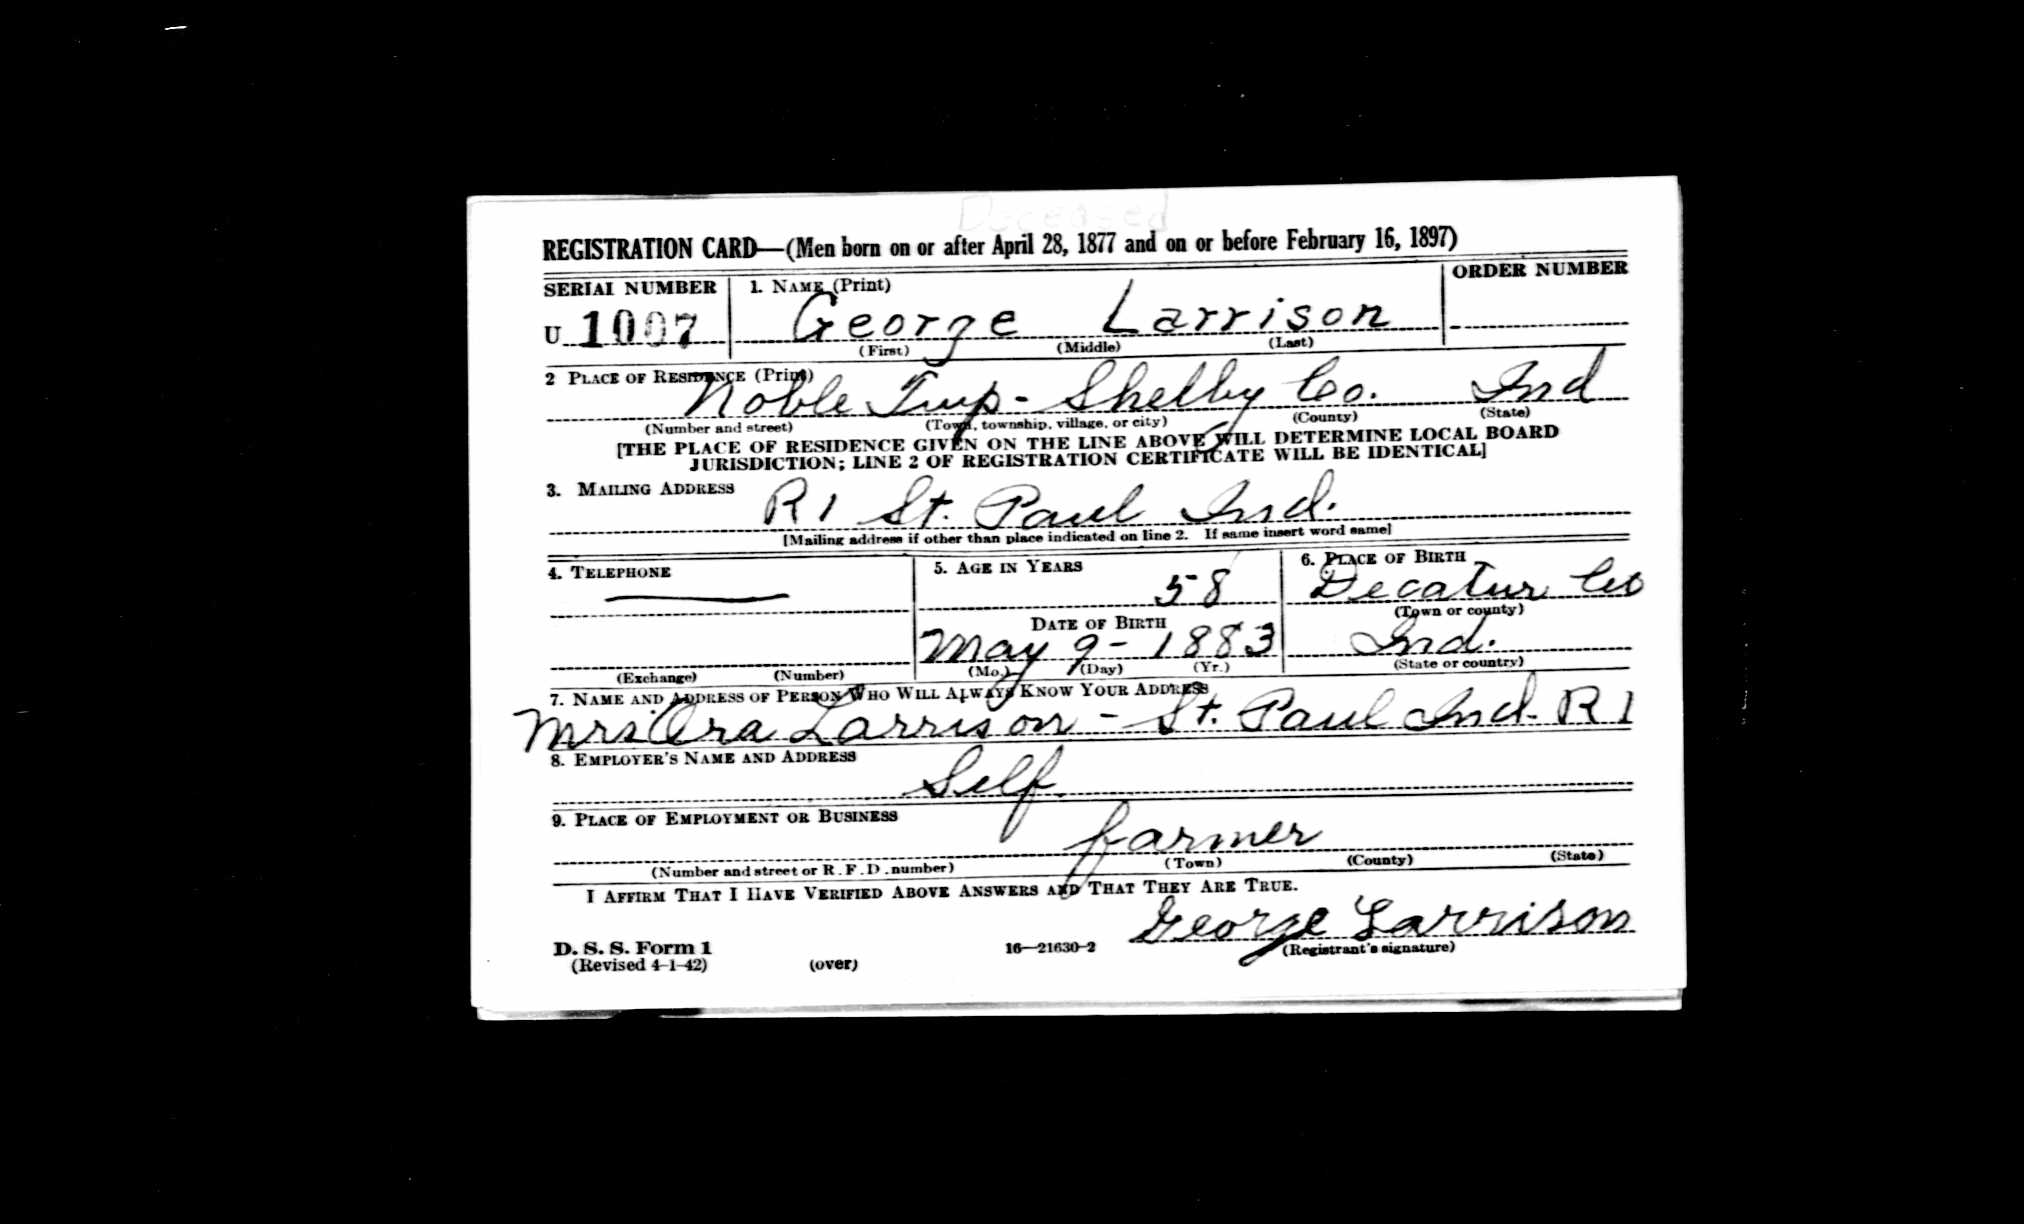 Deceased
REGISTRATION CARD—(Men born on or after April 28, 1877 and on or before February 16, 1897)
SERIAL NUMBER 1. NAME (Print) ORDER NUMBER
U 1007 George Larrison
(First) (Middle) (Last)
2 PLACE OF RESIDENCE (Print)
Noble Twp - Shelby Co. Ind
(Number and street) (Town, township, village, or city) (County) (State)
[THE PLACE OF RESIDENCE GIVEN ON THE LINE ABOVE WILL DETERMINE LOCAL BOARD
JURISDICTION; LINE 2 OF REGISTRATION CERTIFICATE WILL BE IDENTICAL]
3. MAILING ADDRESS
R1 St. Paul Ind.
[Mailing address if other than place indicated on line 2. If same insert word same]
4. TELEPHONE 5. AGE IN YEARS 6. PLACE OF BIRTH
58 Decatur Co
(Town or county)
DATE OF BIRTH
May 9 - 1883 Ind.
(Exchange) (Number) (Mo.) (Day) (Yr.) (State or country)
7. NAME AND ADDRESS OF PERSON WHO WILL ALWAYS KNOW YOUR ADDRESS
Mrs Ora Larrison - St. Paul Ind. R1
8. EMPLOYER'S NAME AND ADDRESS
Self
9. PLACE OF EMPLOYMENT OR BUSINESS
farmer
(Number and street or R. F. D. number) (Town) (County) (State)
I AFFIRM THAT I HAVE VERIFIED ABOVE ANSWERS AND THAT THEY ARE TRUE.
George Larrison
D. S. S. Form 1 16—21630-2 (Registrant's signature)
(Revised 4-1-42) (over)